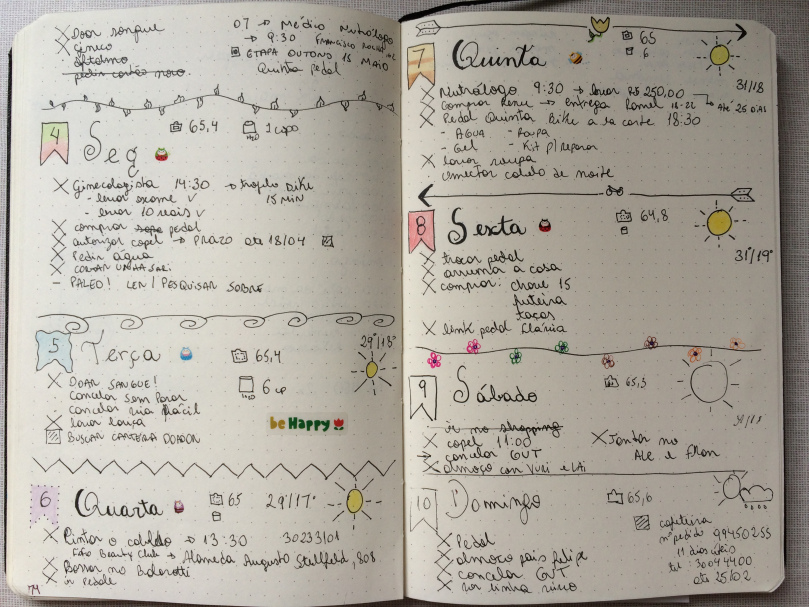 Doar sangue
gineco
oftalmo
pedir cartão novo
07 → Médico Nutrólogo
→ 9:30 Francisco Rocha
ETAPA OUTONO 15 MAIO
Quinta pedal
4
Seg
65,4
1 copo
Ginecologista 14:30 → troféu Bike
- levar exame ✓ 15 MIN
- levar 10 reais ✓
comprar pedal
autorizar copel → PRAZO ate 18/04
Pedir água
CORTAR UNHA
- PALEO! LER / PESQUISAR SOBRE
5
Terça
65,4
29°/18°
6 cp
DOAR SANGUE!
Cancelar Sem Parar
cancelar via fácil
lavar louça
BUSCAR CARTEIRA DOADOR
be Happy
6
Quarta
65
29°/17°
Pintar o cabelo → 13:30 30233101
Beauty Club → Alameda Augusto Stellfeld, 808
Bossar no
ir Pedale
74
7
Quinta
65
6
31/18
Nutrólogo 9:30 → levar R$ 250,00
Comprar Renu → entrega 18-22 → Até 25 DIAS
Pedal Quinta Bike a la carte 18:30
- AGUA - Roupa
- Gel - Kit p/ reparo
lavar roupa
umectar cabelo de noite
8
Sexta
64,8
31°/19°
trocar pedal
arrumar a casa
comprar: chave 15
fruteira
taças
link pedal Flávia
9
Sábado
65,3
ir no shopping
copel 11:00
→ cancelar GVT
almoço com Yuri e Lai
Jantar no
Ale e Fran
10
Domingo
65,6
Pedal
almoço pais felipe
cancelar GVT
ver linha
cafeteira
nº pedido 99450255
11 dias úteis
tel 30044400
ate 25/02